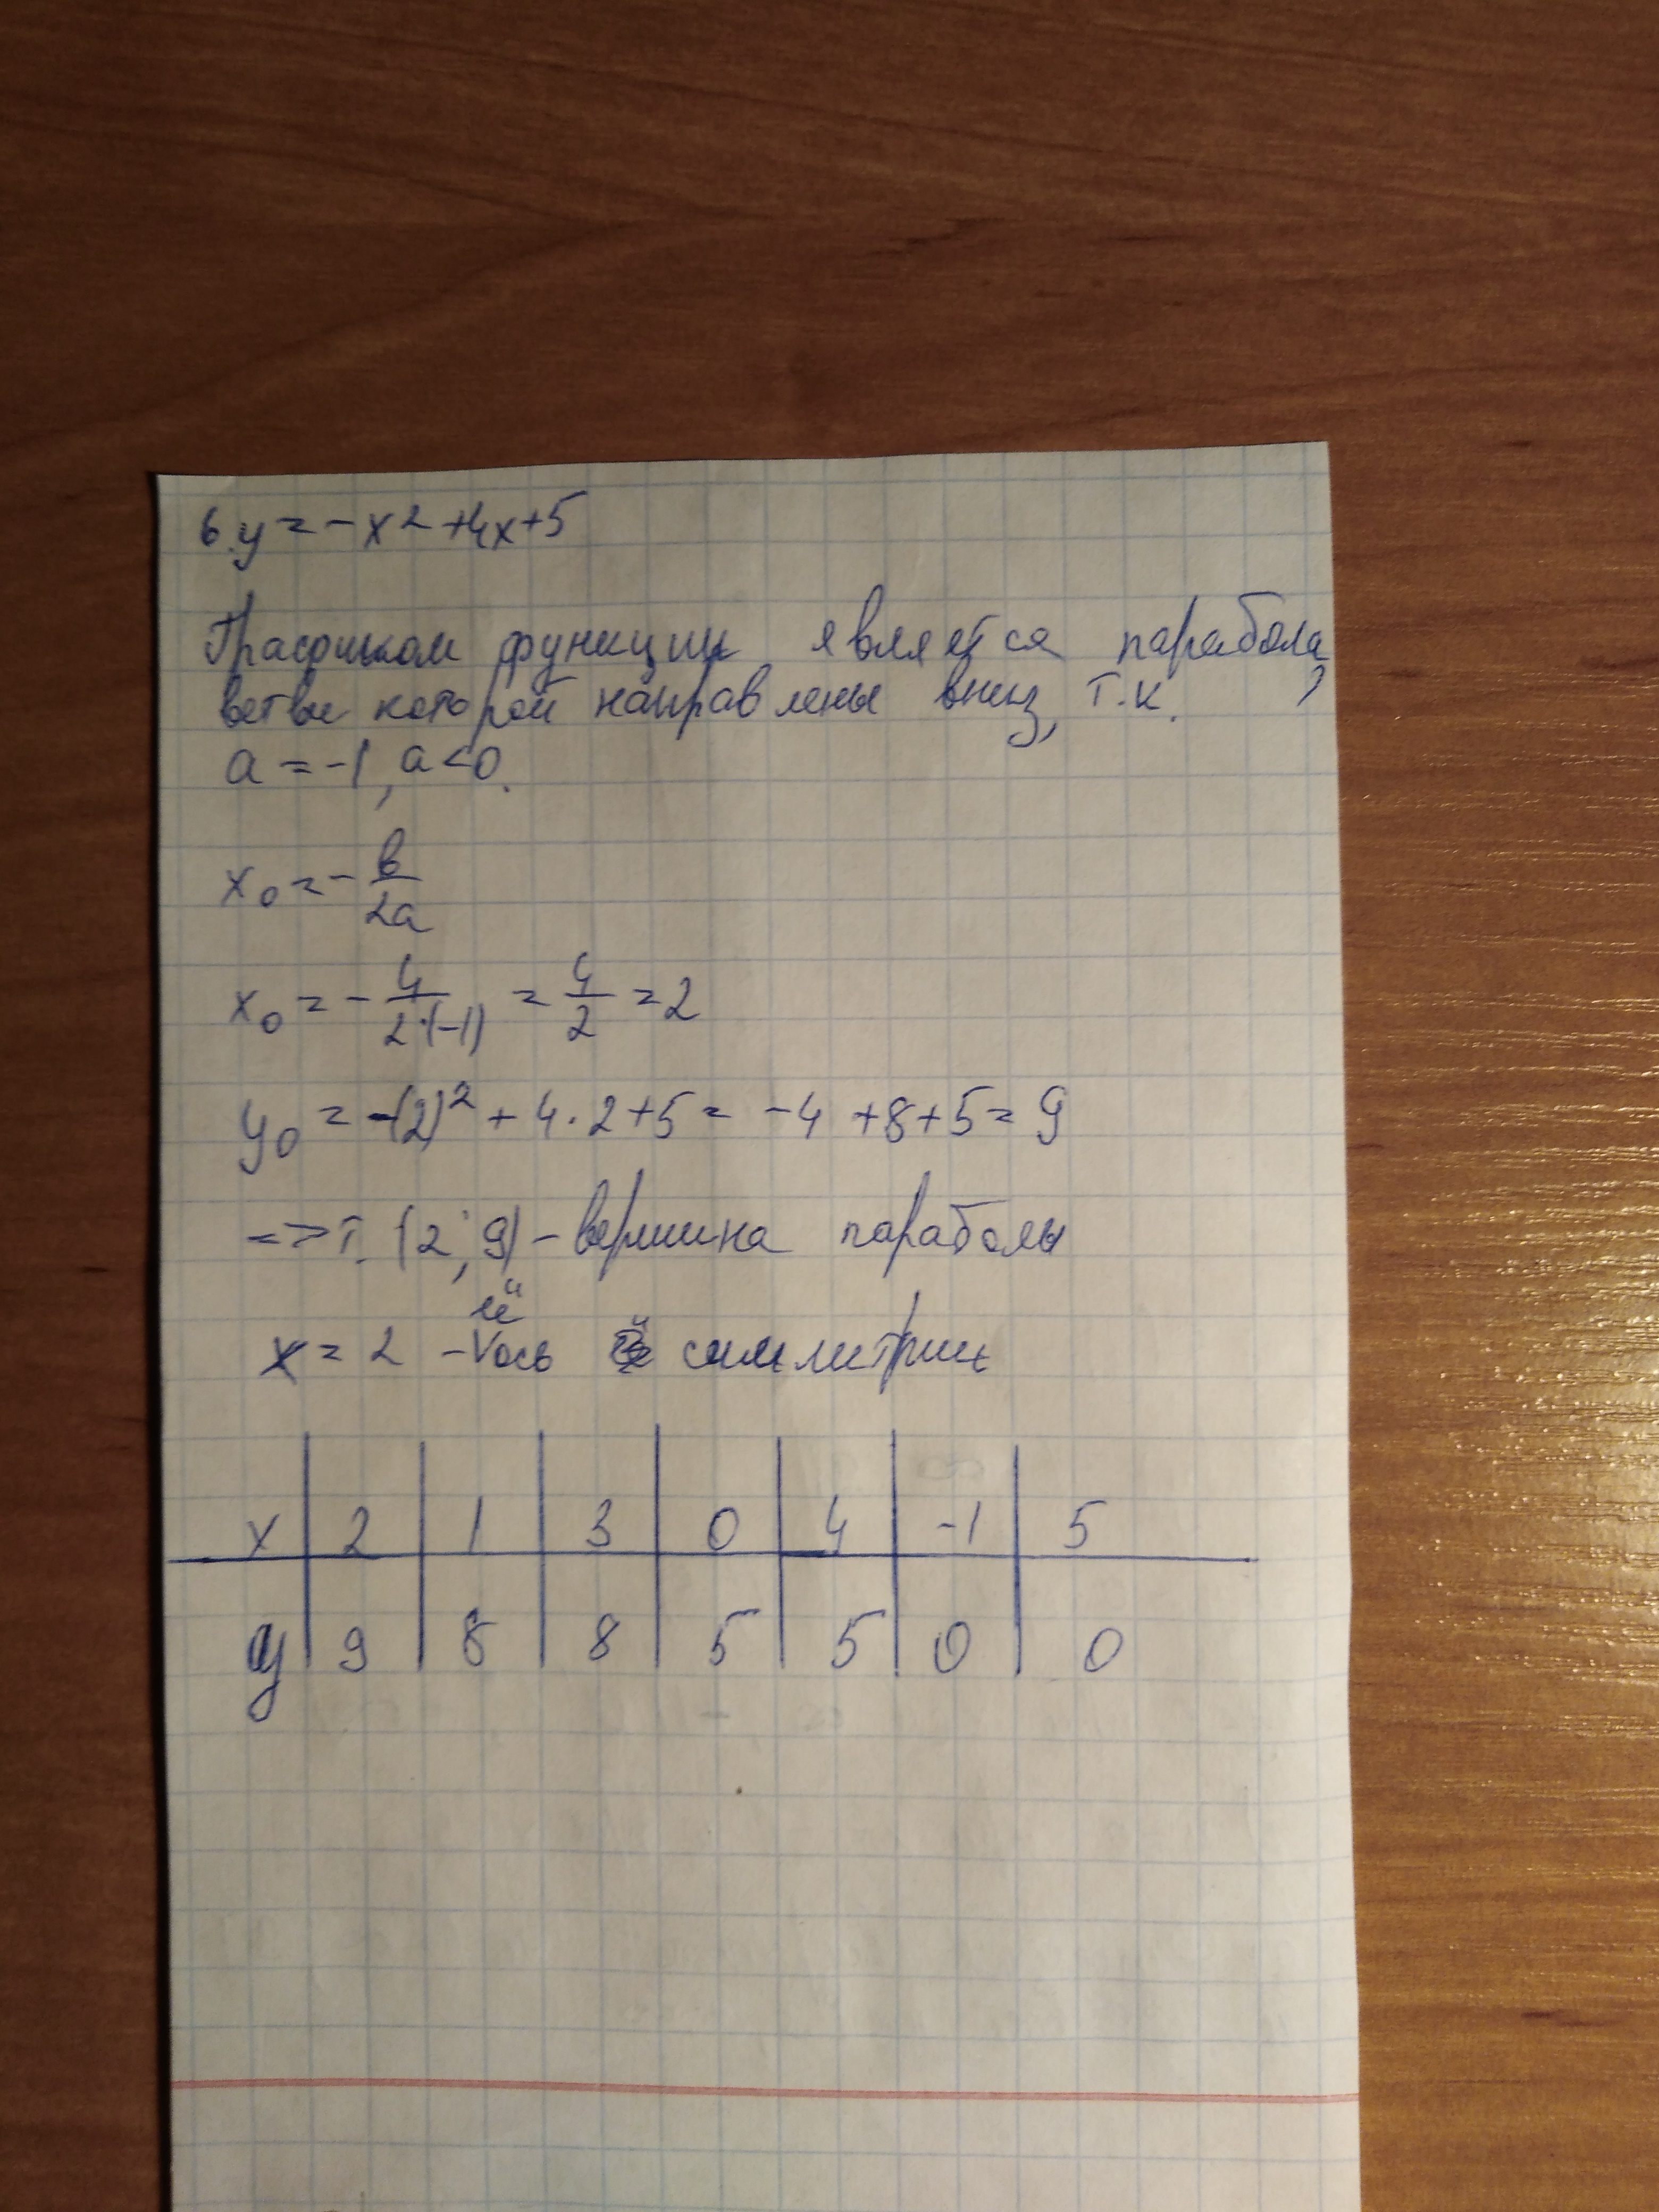 6. y = -x2 +4x+5
Графиком функции является парабола,
ветви которой направлены вниз, т.к.
a = -1, a<0.
x₀ = - в/2a
x₀ = - 4/2·(-1) = 4/2 = 2
y₀ = -(2)² + 4·2+5 = -4 +8+5 = 9
=> т. (2; 9) - вершина параболы
её
x = 2 - Vось симметрии
x | 2 | 1 | 3 | 0 | 4 | -1 | 5
y | 9 | 8 | 8 | 5 | 5 | 0 | 0